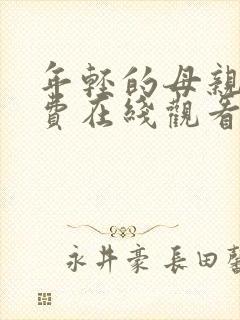 年輕的母親
費在綫觀看
永井豪 長田馨